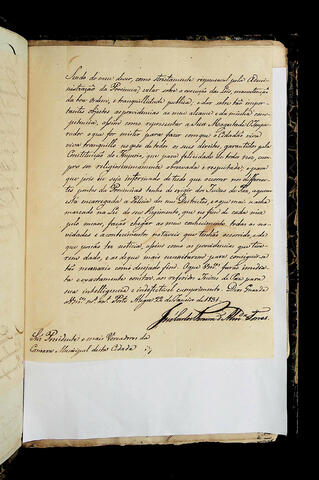 Sendo do meu dever, como strictamente responsavel pela Admi-
nistração da Provincia, velar sobre a execução das Leis, manutenção
da boa ordem, e tranquillidade publica, e dar sobre tão impor-
tantes objectos as providencias ao meu alcance, e da minha com-
petencia, assim como representar a Sua Magestade o Impe-
rador o que for mister para fazer com que o Cidadão viva
viva tranquillo no goso de todos os seus direitos, garantidos pela
Constituição do Imperio, que para felicidade de todos nós, cum-
pre ser religiosissimamente observada, e respeitada; e para
que para isso seja informado de tudo que occorrer nos differen-
tes pontos da Provincia tenho de exigir dos Juizes de Paz, aquem
está encarregada a Policia de seus Districtos, e o que mais se acha
marcado na Lei do seu Regimento, que no fim de cada mez
pelo menos, fação chegar ao meu conhecimento todas as no-
vidades e acontecimentos notaveis que tenhão occorrido, e de
que possão ter noticia, assim como as providencias que tive-
rem dado, e as de que mais necessitarem para conseguir-se
tão necessario como desejado fim. O que V.mces farão imediata
e exactamente constar aos referidos Juizes de Paz para
sua intelligencia, e indefectivel cumprimento. Deos Guarde
a V.mces Porto Alegre 22 de Janeiro de 1831.
Snr.s Presidente e mais Vereadores da
Camara Municipal desta Cidade